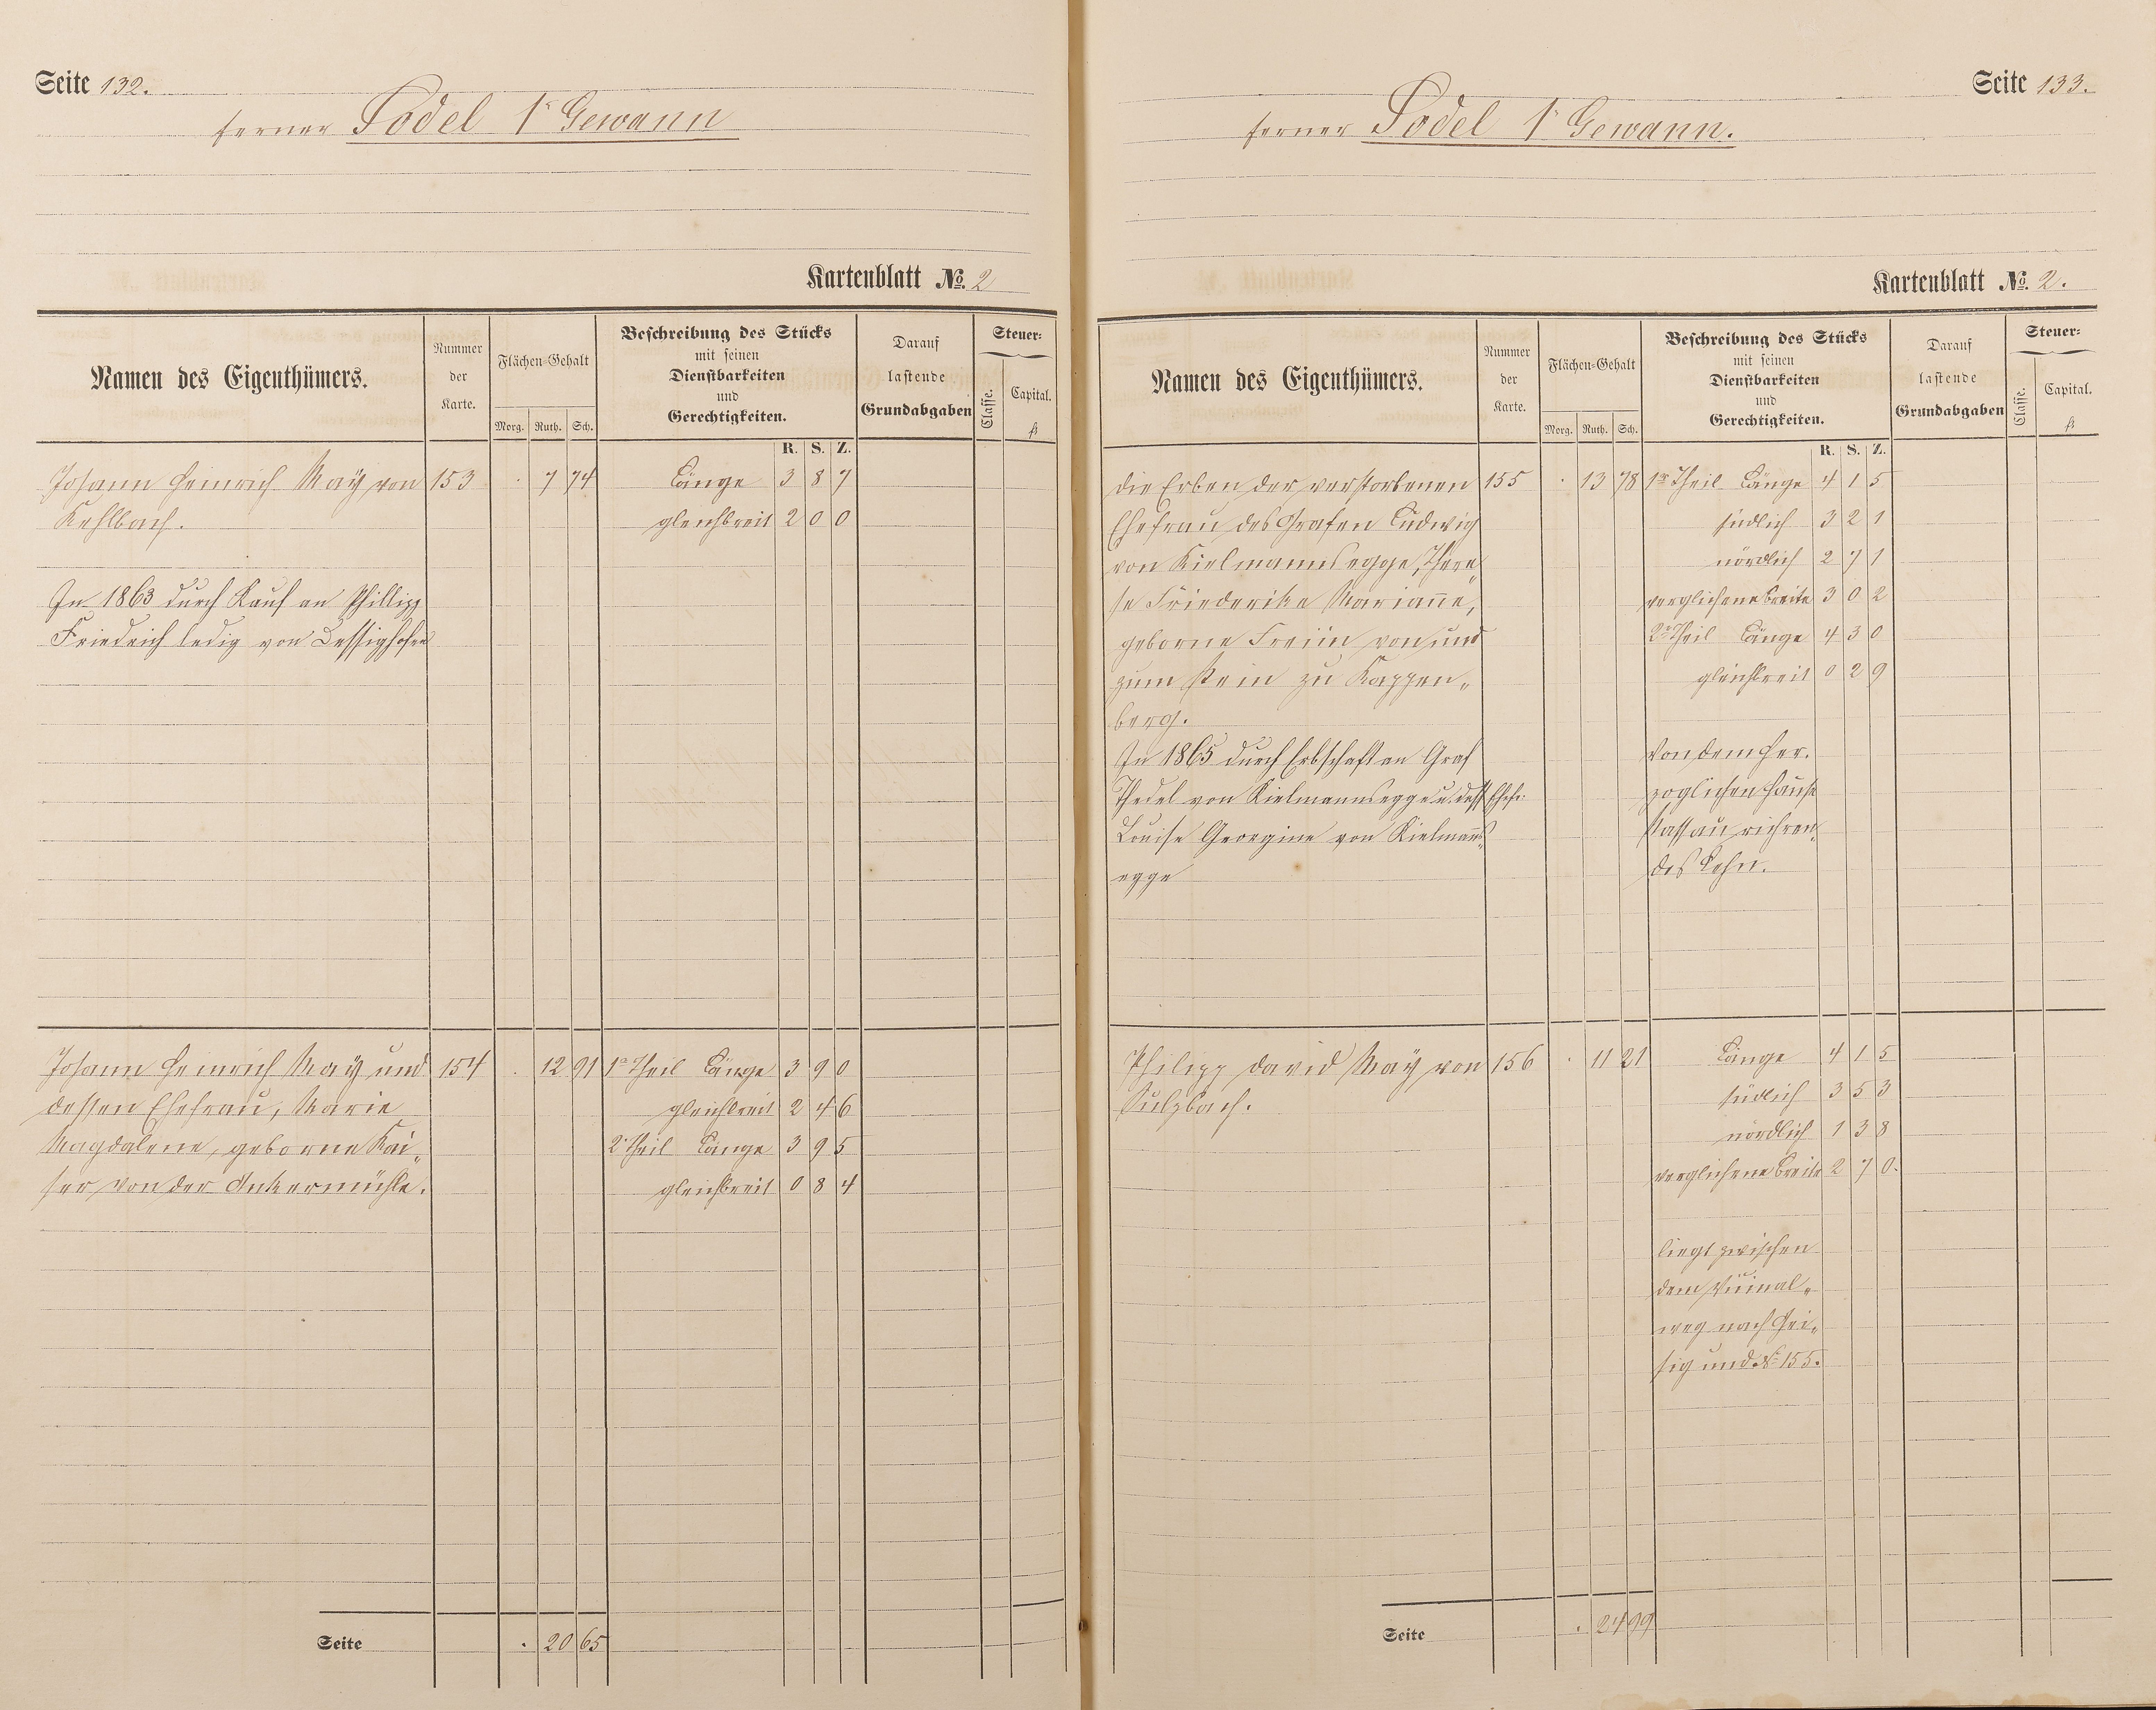 Seite 132.
ferner Sodel 1r Gewann
Kartenblatt No. 2
Namen des Eigenthümers.
Nummer
der
Karte.
Flächen-Gehalt
Morg. Ruth. Sch.
Beschreibung des Stücks
mit seinen
Dienstbarkeiten
und
Gerechtigkeiten.
Darauf
lastende
Grundabgaben
Steuer-
Classe.
Capital.
fl
R. S. Z.
Johann Heinrich Maÿ von 153 . 7 74 Länge 3 8 7
Kehlbach. gleichbreit 2 0 0
In 1863 durch Kauf an Phillipp
Friedrich ledig von Dessighofen
Johann Heinrich Maÿ und 154 . 12 91 1r Theil Länge 3 9 0
dessen Ehefrau, Marie gleichbreit 2 4 6
Magdalene, geborne Kai- 2r Theil Länge 3 9 5
ser von der Ankermühle. gleichbreit 0 8 4
Seite . 20 65
Seite 133.
ferner Sodel 1r Gewann.
Kartenblatt No. 2.
Namen des Eigenthümers.
Nummer
der
Karte.
Flächen-Gehalt
Morg. Ruth. Sch.
Beschreibung des Stücks
mit seinen
Dienstbarkeiten
und
Gerechtigkeiten.
Darauf
lastende
Grundabgaben
Steuer-
Classe.
Capital.
fl
R. S. Z.
die Erben der verstorbenen 155 . 13 78 1r Theil Länge 4 1 5
Ehefrau des Grafen Ludwig südlich 3 2 1
von Kielmannsegge, There- nördlich 2 7 1
se Friederike Marianne, verglichene Breite 3 0 2
geborne Freiin von und 2r Theil Länge 4 3 0
zum Stein zu Kappen- gleichbreit 0 2 9
berg.
In 1865 durch Erbschaft an Graf von dem Her-
Thedel von Kielmannsegge u. dess Ehefr: zoglichen Hause
Louise Georgine von Kielmanns- Nassau
egge des Lehn.
Philipp David Maÿ von 156 . 11 21 Länge 4 1 5
Sulzbach. südlich 3 5 3
nördlich 1 3 8
verglichene Breite 2 7 0.
liegt zwischen
dem Vicinal-
weg nach Gei-
sig und No 155.
Seite . 24 99